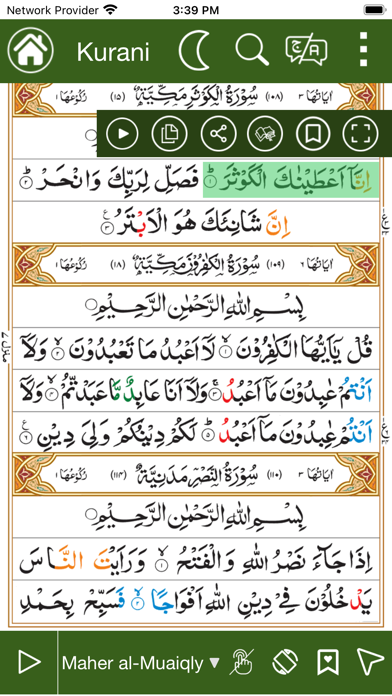 Network Provider 3:39 PM
Kurani
اٰيَاتُهَا ٣ (١٠٨) سُوْرَةُ الْكَوْثَرِ مَكِّيَّةٌ (١٥) رُكُوْعُهَا ١
اِنَّاۤ اَعْطَيْنٰكَ الْكَوْثَرَ ۝١ فَصَلِّ لِرَبِّكَ وَانْحَرْ ۝٢
اِنَّ شَانِئَكَ هُوَ الْاَبْتَرُ ۝٣
اٰيَاتُهَا ٦ (١٠٩) سُوْرَةُ الْكٰفِرُوْنَ مَكِّيَّةٌ (١٨) رُكُوْعُهَا ١
بِسْمِ اللّٰهِ الرَّحْمٰنِ الرَّحِيْمِ
قُلْ يٰۤاَيُّهَا الْكٰفِرُوْنَ ۝١ لَاۤ اَعْبُدُ مَا تَعْبُدُوْنَ ۝٢ وَلَاۤ
اَنْتُمْ عٰبِدُوْنَ مَاۤ اَعْبُدُ ۝٣ وَلَاۤ اَنَا عَابِدٌ مَّا عَبَدْتُّمْ ۝٤ وَلَاۤ
اَنْتُمْ عٰبِدُوْنَ مَاۤ اَعْبُدُ ۝٥ لَكُمْ دِيْنُكُمْ وَلِيَ دِيْنِ ۝٦
اٰيَاتُهَا ٣ (١١٠) سُوْرَةُ النَّصْرِ مَدَنِيَّةٌ (١١٤) رُكُوْعُهَا ١
بِسْمِ اللّٰهِ الرَّحْمٰنِ الرَّحِيْمِ
اِذَا جَآءَ نَصْرُ اللّٰهِ وَالْفَتْحُ ۝١ وَرَاَيْتَ النَّاسَ
يَدْخُلُوْنَ فِيْ دِيْنِ اللّٰهِ اَفْوَاجًا ۝٢ فَسَبِّحْ بِحَمْدِ
Maher al-Muaiqly